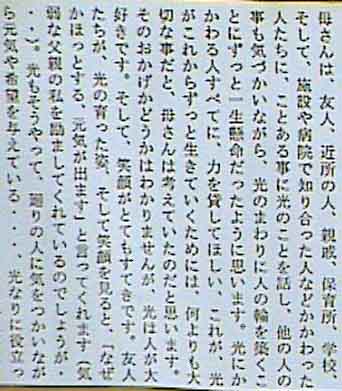 母さんは、友人、近所の人、親戚、保育所、学校、
そして、施設や病院で知り合った人などかかわった
人たちに、ことある事に光のことを話し、他の人の
事も気づかいながら、光のまわりに人の輪を築くこ
とにずっと一生懸命だったように思います。光にか
かわる人すべてに、力を貸してほしい、これが、光
がこれからずっと生きていくためには、何よりも大
切な事だと、母さんは考えていたのだと思います。
そのおかげかどうかはわかりませんが、光は人が大
好きです。そして、笑顔がとてもすてきです。友人
たちが、光の育った姿、そして笑顔を見ると、「なぜ
かほっとする、元気が出ます」と言ってくれます(気
弱な父親の私を励ましてくれているのでしょうが・
・・)。光もそうやって、廻りの人に気をつかいなが
ら元気や希望を与えている・・、光なりに役立っ